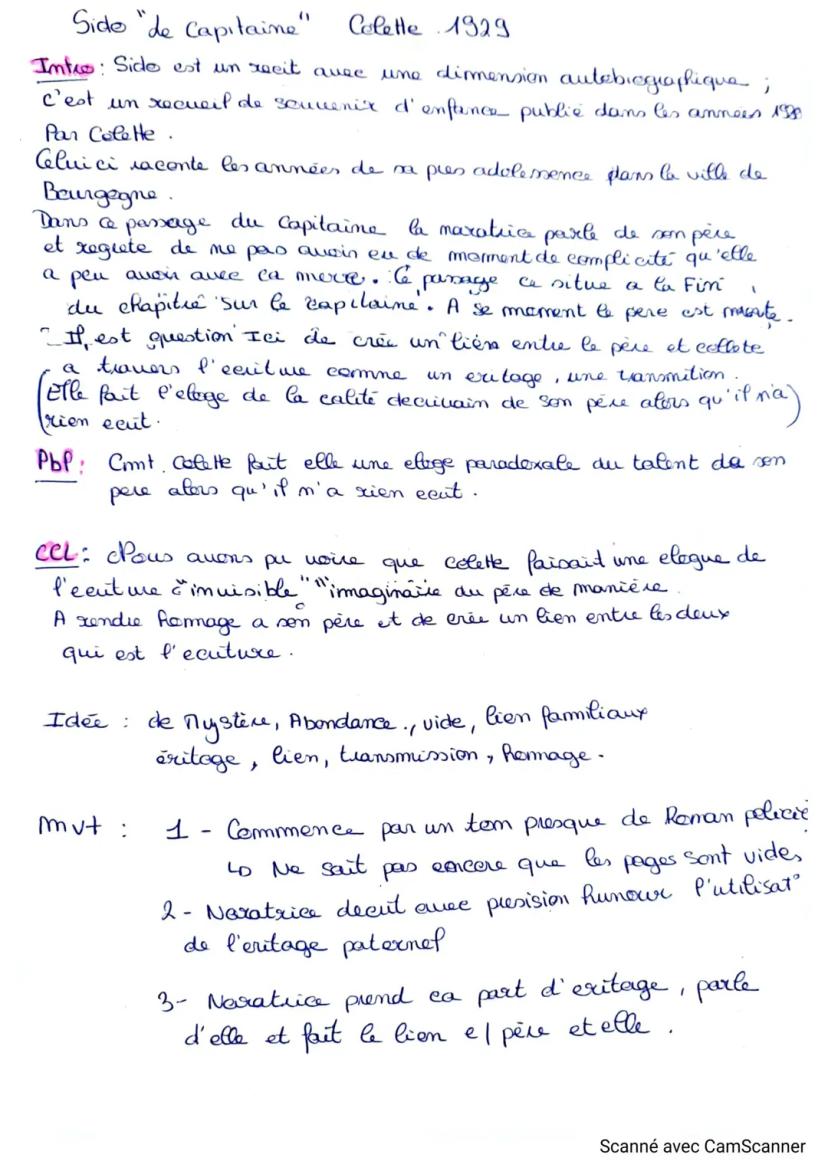 Sido "de Capitaine" Colette 1929
Intro : Sido est un recit avec une dimension autobiographique ;
c'est un recueil de souvenir d'enfance publié dans les annees
Par Colette .
Celui ci raconte les années de sa pres adolessence dans la ville de
Bourgogne .
Dans ce passage du Capitaine la naratrice parle de son père
et regrete de ne pas avoir eu de moment de complicité qu'elle
a peu avoir avec ca merre . Ce passage ce situe a la Fin
du chapitre 'sur le capitaine'. A se moment le pere est morte .
- Il est question Ici de crée un lien entre le père et collete
a travers l'ecriture comme un eritage , une transmition .
(Elle fait l'eloge de la calité decrivain de son père alors qu'il n'a)
(rien ecrit .
Pbl : Cmt Colette fait elle une eloge paradoxale du talent de son
pere alors qu'il n'a rien ecrit .
CCL : Nous avons pu voire que colette faisait une elogue de
l'ecriture "invisible" "imaginaire du père de manière
A rendre homage a son père et de crée un lien entre les deux
qui est l'ecriture .
Idée : de Mystère, Abondance ., vide, lien familiaux
éritage , lien, transmission , Homage .
Mvt : 1 - Commence par un ton presque de Roman policié
↳ Ne sait pas encore que les pages sont vides
2 - Naratrice decrit avec presision humour l'utilisat°
de l'eritage paternel
3- Naratrice prend ca part d'eritage , parle
d'elle et fait le lien e/ père et elle .
Scanné avec CamScanner